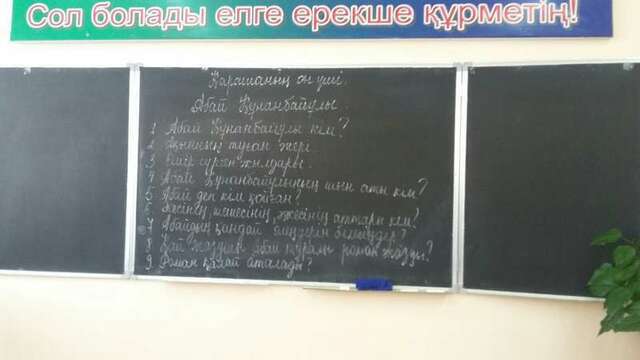 Сол болады елге ерекше құрметің!
Қарашаның үші.
Абай Құнанбайұлы.
1 Абай Құнанбайұлы кім?
2 Ақынның туған жері.
3 Өмір сүрген жылдары.
4 Абай Құнанбайұлының шын аты кім?
5 Абай деп кім қойған?
6 Әкесінің, шешесінің, әжесінің аттары кім?
7 Абайдың қандай өлеңдерін білесіңдер?
8 Қай жазушы Абай туралы роман жазды?
9 Роман қалай аталады?